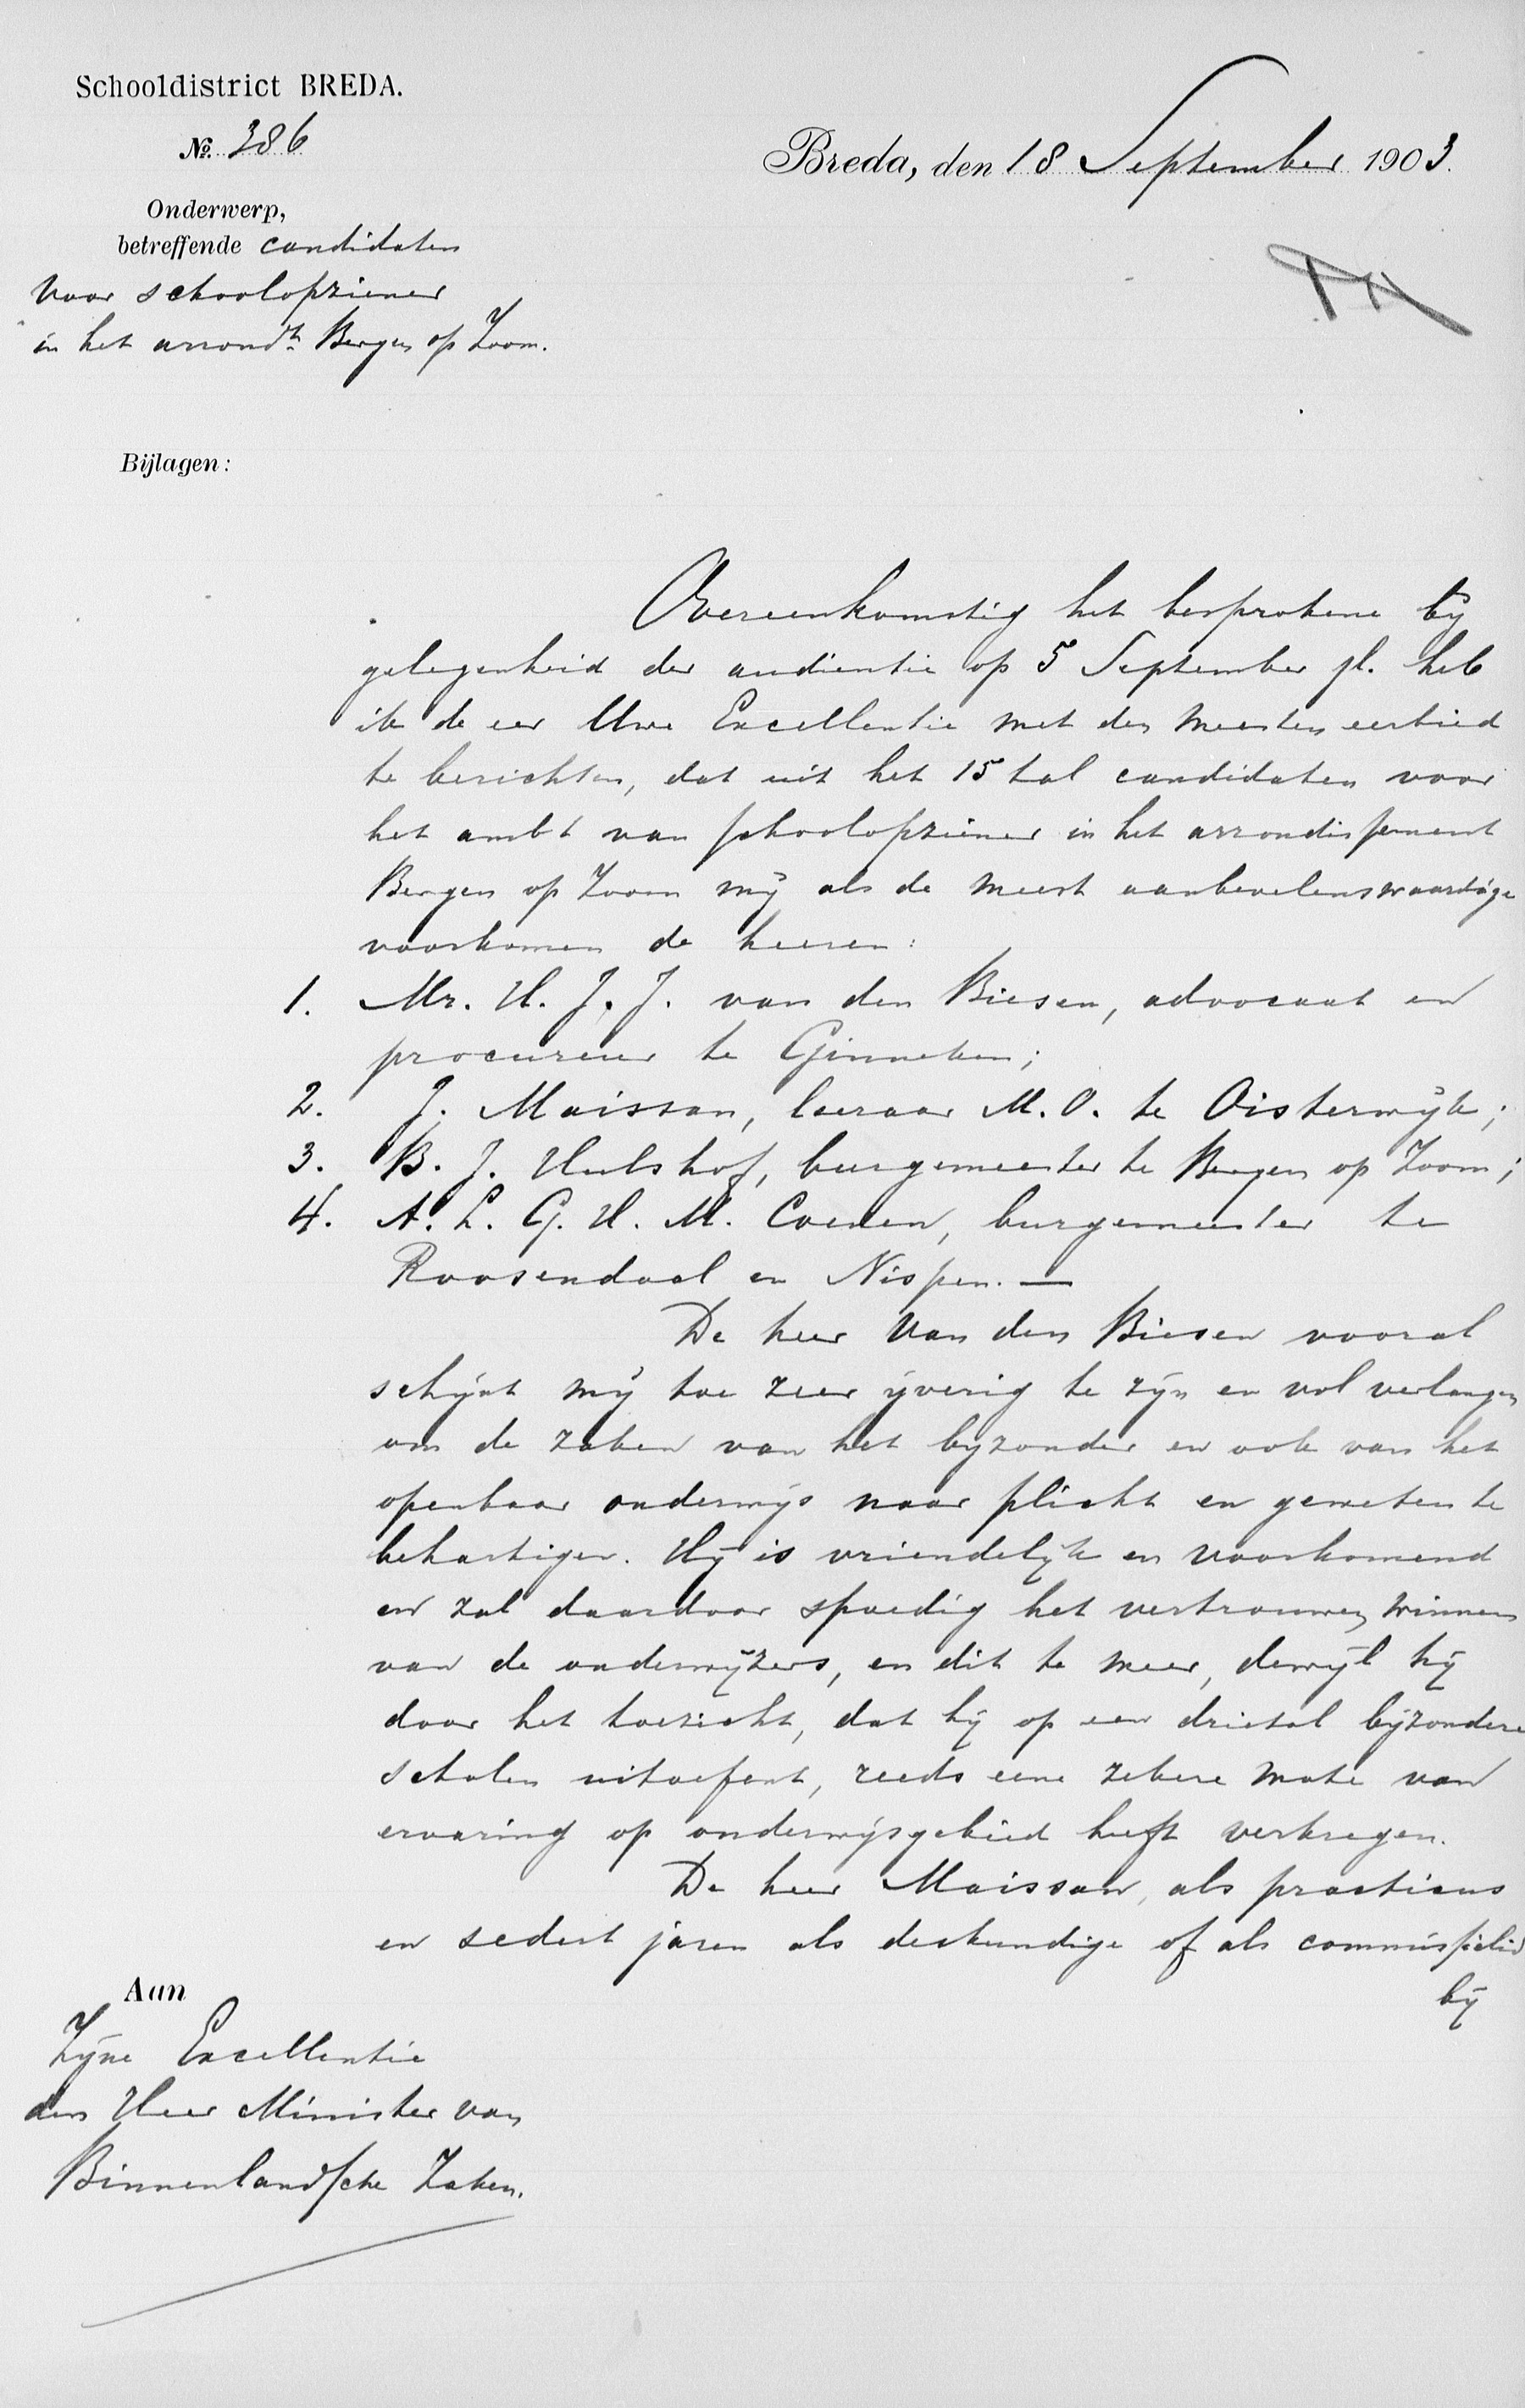 Schooldistrict BREDA.
No. 386
Breda, den 18 September 1903.
Onderwerp,
betreffende candidaten
voor schoolopziener
in het arrondt. Bergen op Zoom.
Bijlagen:
Overeenkomstig het besprokene bij
gelegenheid der audientie op 5 September jl. heb
ik de eer Uwe Excellentie met den meesten eerbied
te berichten, dat uit het 15 tal candidaten voor
het ambt van schoolopziener in het arrondissement
Bergen op Zoom mij als de meest aanbevelenswaardige
voorkomen de heeren:
1. Mr. H. J. J. van den Biesen, advocaat en
procureur te Ginneken;
2. J. Maissan, leeraar M.O. te Oisterwijk;
3. B. J. Hulshof, burgemeester te Bergen op Zoom;
4. A. L. G. H. M. Coenen, burgemeester te
Roosendaal en Nispen. —
De heer Van den Biesen vooral
schijnt mij toe zeer ijverig te zijn en vol verlangen
om de zaken van het bijzonder en ook van het
openbaar onderwijs naar plicht en geweten te
behartigen. Hij is vriendelijk en voorkomend
en zal daardoor spoedig het vertrouwen winnen
van de onderwijzers, en dit te meer, dewijl hij
door het toezicht, dat hij op een drietal bijzondere
scholen uitoefent, reeds eene zekere mate van
ervaring op onderwijsgebied heeft verkregen.
De heer Maissan, als practicus
en sedert jaren als deskundige of als commissielid
bij
Aan
Zijne Excellentie
den Heer Minister van
Binnenlandsche Zaken.